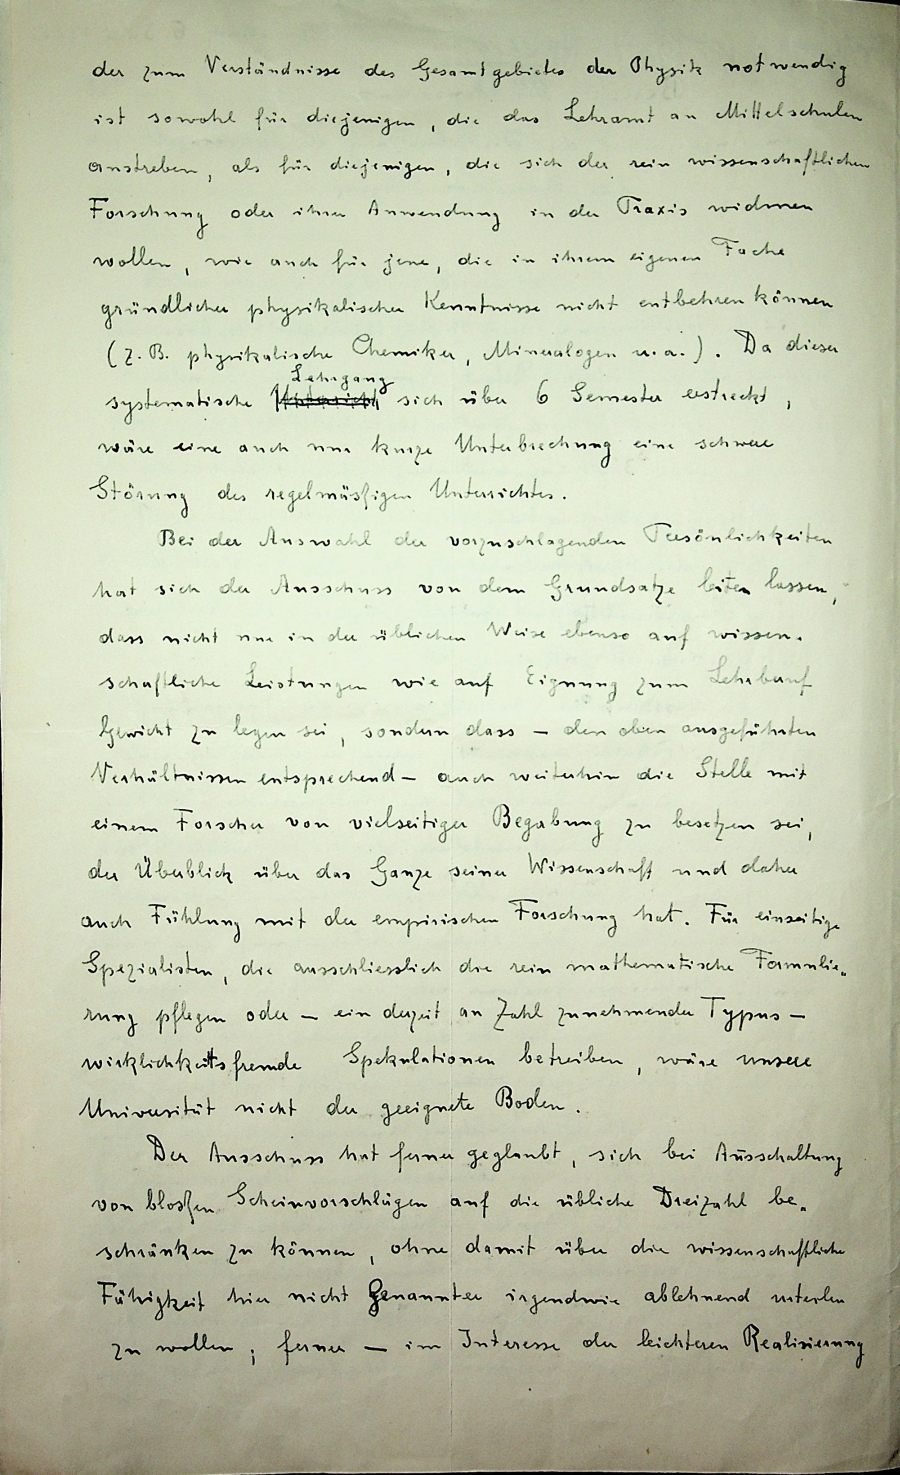 der zum Verständnisse des Gesamtgebietes der Physik notwendig
ist sowohl für diejenigen, die das Lehramt an Mittelschulen
anstreben, als für diejenigen, die sich der rein wissenschaftlichen
Forschung oder ihrer Anwendung in der Praxis widmen
wollen, wie auch für jene, die in ihrem eigenen Fache
gründlicher physikalischer Kenntnisse nicht entbehren können
(z. B. physikalische Chemiker, Mineralogen u. a.). Da dieser
Lehrgang
systematische Unterricht sich über 6 Semester erstreckt,
wäre eine auch nur kurze Unterbrechung eine schwere
Störung des regelmäsfigen Unterrichtes.
Bei der Auswahl der vorzuschlagenden Persönlichkeiten
hat sich der Ausschuss von dem Grundsatze leiten lassen,
dass nicht nur in der üblichen Weise ebenso auf wissen-
schaftliche Leistungen wie auf Eignung zum Lehrberuf
Gewicht zu legen sei, sondern dass – den oben ausgeführten
Verhältnissen entsprechend – auch weiterhin die Stelle mit
einem Forscher von vielseitiger Begabung zu besetzen sei,
der Überblick über das Ganze seiner Wissenschaft und daher
auch Fühlung mit der empirischen Forschung hat. Für einseitige
Spezialisten, die ausschliesslich die rein mathematische Formulie-
rung pflegen oder – ein derzeit an Zahl zunehmender Typus –
wirklichkeitsfremde Spekulationen betreiben, wäre unsere
Universität nicht der geeignete Boden.
Der Ausschuss hat ferner geglaubt, sich bei Ausschaltung
von bloßen Scheinvorschlägen auf die übliche Dreizahl be-
schränken zu können, ohne damit über die wissenschaftliche
Fähigkeit hier nicht Genannter irgendwie ablehnend urteilen
zu wollen; ferner – im Interesse der leichteren Realisierung